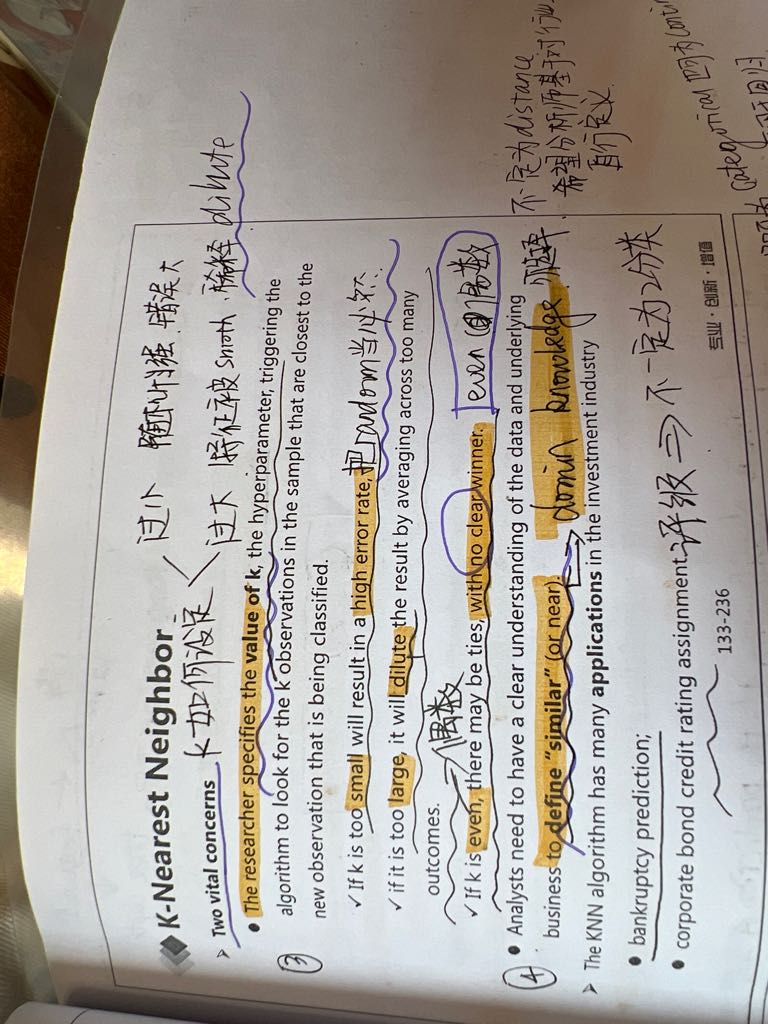 K-Nearest Neighbor
➢ Two vital concerns k 如何设定
过小 随机性强 错误大
过大 特征被 Smoth 稀释 dilute
• The researcher specifies the value of k, the hyperparameter, triggering the
algorithm to look for the k observations in the sample that are closest to the
new observation that is being classified.
③
✓ If k is too small will result in a high error rate, 把 random 当必然
✓ if it is too large, it will dilute the result by averaging across too many
outcomes.
偶数
✓ If k is even, there may be ties, with no clear winner. even 偶数
④
• Analysts need to have a clear understanding of the data and underlying
business to define "similar" (or near). → domin knowledge
不一定为distance
希望分析师基于对行业
自行定义
➢ The KNN algorithm has many applications in the investment industry
• bankruptcy prediction;
• corporate bond credit rating assignment. 评级 ⇒ 不一定为2分类
133-236
专业·创新·增值
categorical